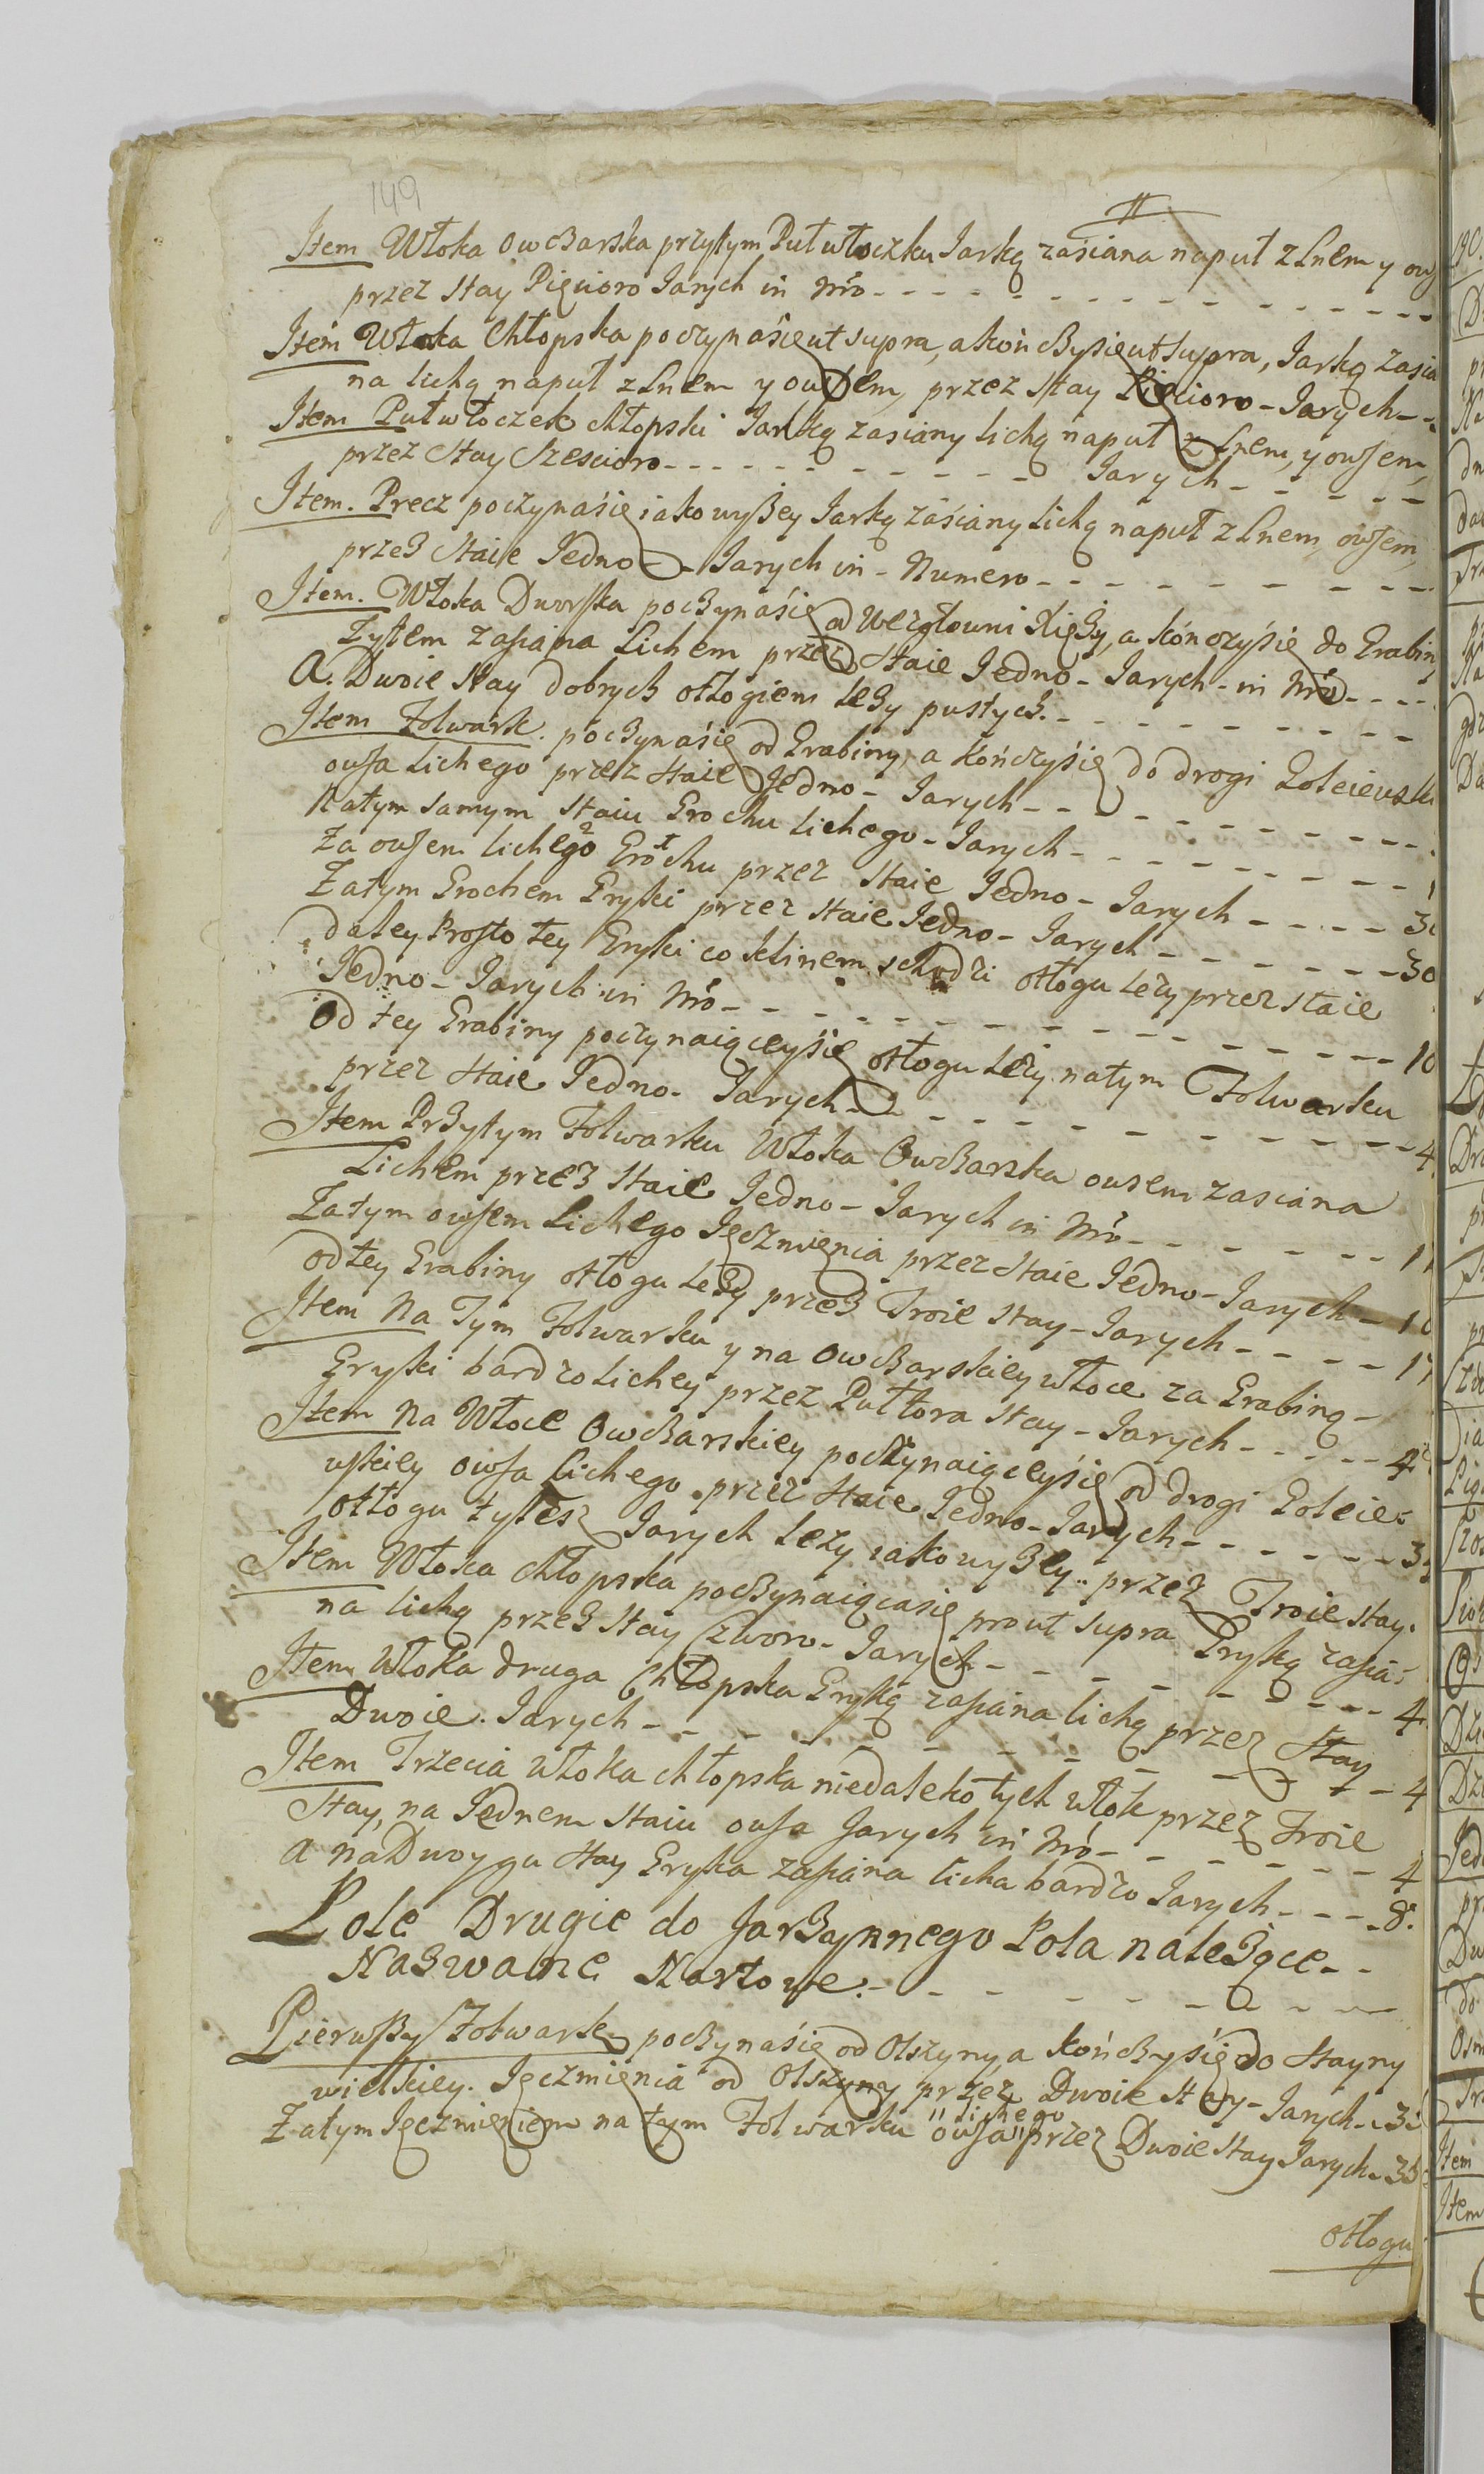 149
Item Włoka owczarska przytym Pułwłoczku Jarką zasiana naput z Lnem y ows
przez Stay Pięcioro Jarych in Nro
Item Włoka Chłopska poczynasię ut supra, a kończysię ut supra, Jarką zasia
na lichą naput z Lnem y owsem, przez Stay Pięcioro - Jarych
Item Pułwłoczek chłopski Jarką zasiany lichą naput z Lnem, y owsem,
przez Stay Sześcioro Jarych
Item. Precz poczynasię iako wyßey Jarką zasiany lichą naput z Lnem, owsem,
przeз Staie Jedno - Jarych in - Numero
Item. Włoka Dworska poczynasię od Wezgłowni Xięży, a kończysię do Grabin
Zytem zasiana Lichem przez Staie Jedno - Jarych - in Nro
A. Dwoie Stay dobrych otłogiem leży pustych.
Item Folwark. poczynasię od Grabiny, a kończysię do drogi Goleiewski
owsa Lichego przez Staie Jedno - Jarych
Natym samym Staiu Grochu lichego - Jarych
Za owsem lichego Grochu przez Staie Jedno - Jarych 3
Zatym Grochem Gryki przez Staie Jedno - Jarych 30
daley Prosto tey Gryki co klinem schodzi otłogu leży przez staie
Jedno - Jarych in Nro 10
Od tey Grabiny poczynaiąceysię otłogu Leży natym Folwarku
przez Staie Jedno - Jarych 4
Item Przytym Folwarku Włoka Owczarska owsem zasiana
Lichem przez Staie Jedno - Jarych in Nro 1
Zatym owsem Lichego Jęczmięnia przez Staie Jedno - Jarych 1
odtey Grabiny otłogu leży przez Troie Stay - Jarych 17
Item Na Tym Folwarku y na Owczarskiey włoce za Grabiną
Gryki bardzo lichey przez Pułtora Stay - Jarych 4
Item Na Włoce Owczarskiey poczynaiąceysię od drogi Goleie=
wskiey owsa lichego przez Staie Jedno - Jarych 3
otłogu tyleż Jarych leży iako wyßey.. przez Troie stay.
Item Włoka chłopska poczynaiącasię prout supra Gryką zasia=
na lichą przez Stay Czworo - Jarych 4
Item Włoka druga Chłopska Gryką zasiana lichą przez Stay
Dwoie. Jarych 4
Item Trzecia włoka chłopska niedaleko tych włok przez Troie
Stay, na Jednem Staiu owsa Jarych in Nro 4
A na Dwoygu Stay Gryka zasiana licha bardzo Jarych 8.
Pole Drugie do Jarzynnego Pola należące
Nazwane Nartowe.
Pierwßy Folwark poczynasię od Olszyny a kończysię do Stayny
wielkiey. Jęczmięnia od Olszyny przez Dwoie Stay - Jarych 3
lichego
Zatym Jęczmięniem na tym Folwarku owsa przez Dwoie Stay Jarych 35
otłogu